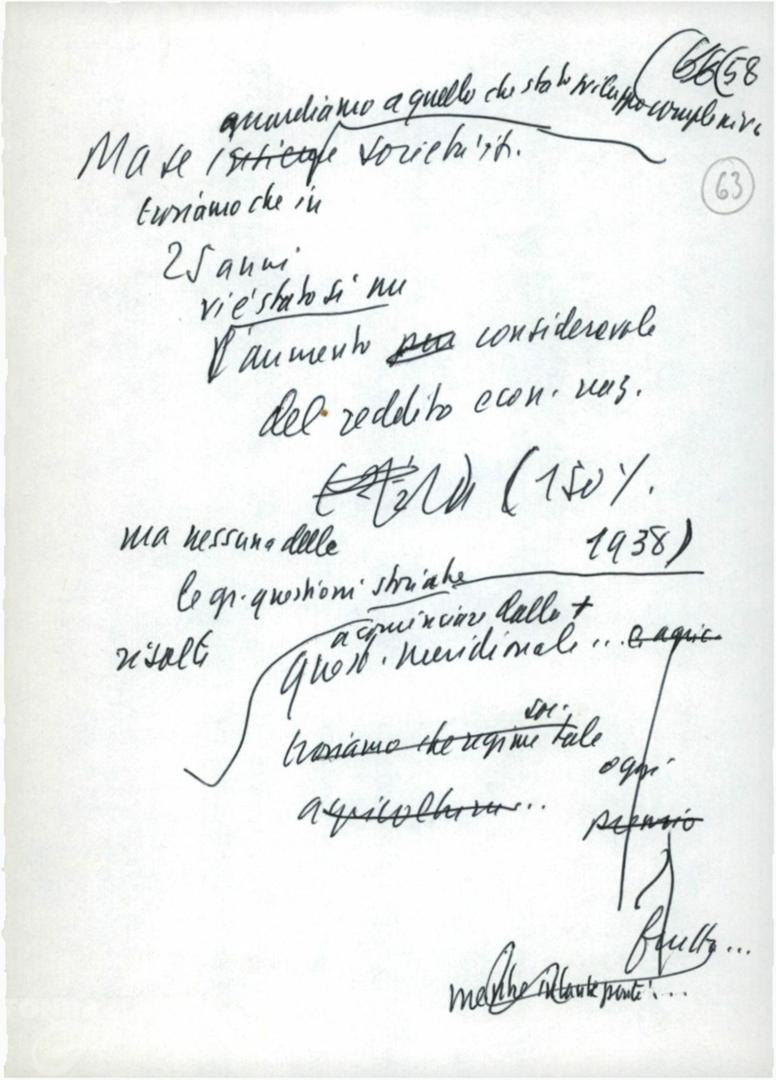 66(58
guardiamo a quello che è stato sviluppo complessivo
Ma se società it.
63
troviamo che in
25 anni
vi è stato sì un
l'aumento considerevole
del reddito econ. naz.
(150%.
1938)
ma nessuna delle
le gr. questioni storiche
a cominciare dalla +
risolte
quest. meridionale... e agric
soc.
troviamo che regime tale
ogni
agricoltura...
premio
frutto...
mentre